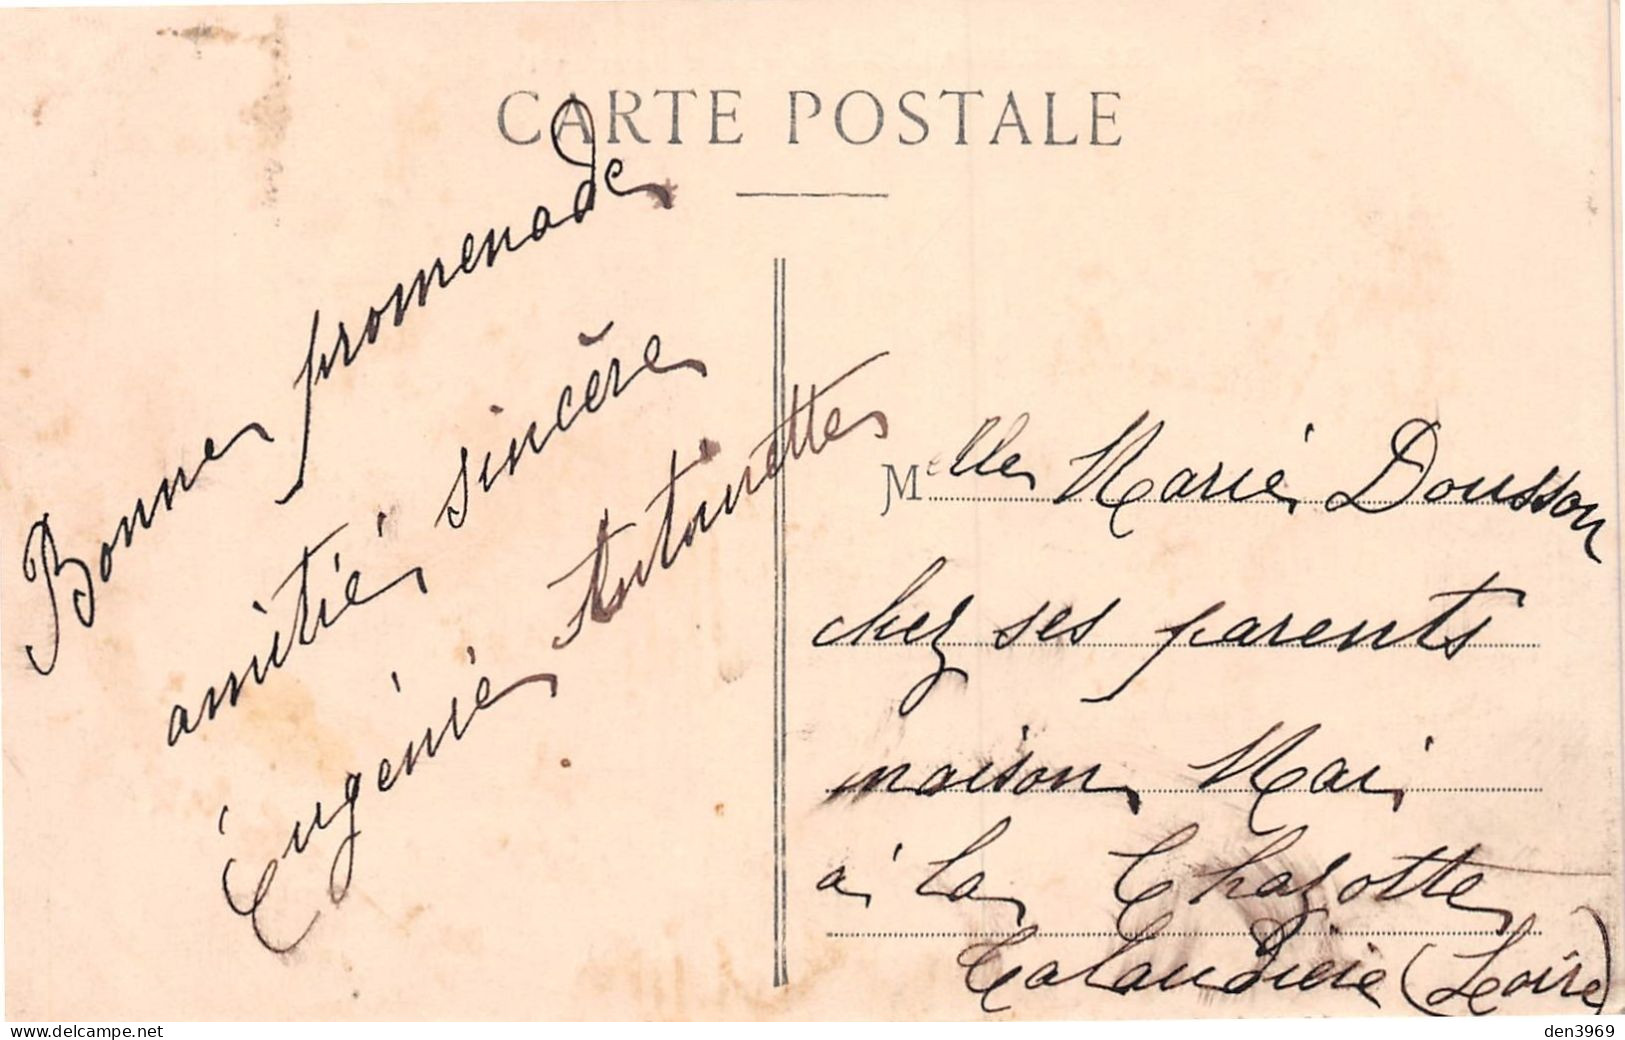 CARTE POSTALE
Bonne promenade
amitié sincère
Eugénie Antoinette
Melle Marie Dousson
chez ses parents
maison Mai
à la Chazotte
Talaudière (Loire)
www.delcampe.net
den3969